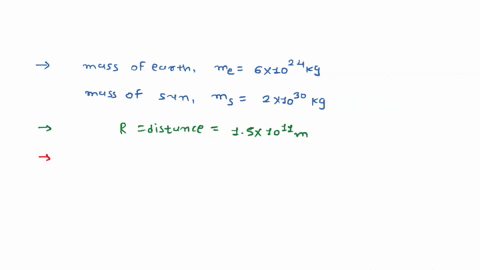 → mass of earth, mₑ = 6×10²⁴ kg
mass of sun, mₛ = 2×10³⁰ kg
→ R = distance = 1.5×10¹¹ m
→